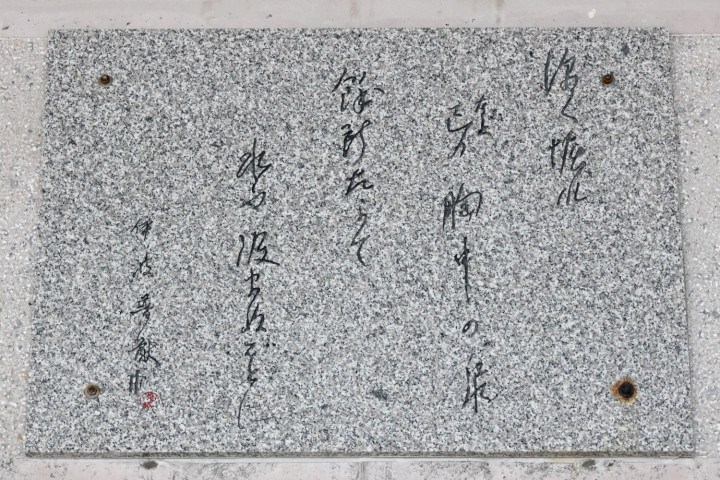 深く掘れ
己の胸中の泉
餘所たよて
水や汲まぬごとに
伊波普猷